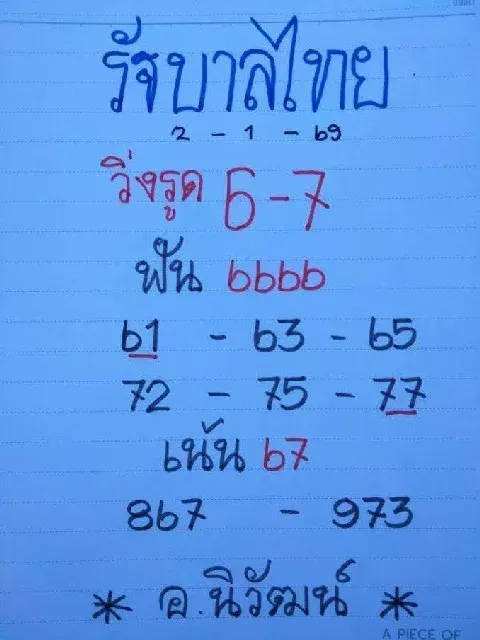 รัฐบาลไทย
2 - 1 - 69
วิ่งรูด 6-7
ฟัน 6666
61 - 63 - 65
72 - 75 - 77
เน้น 67
867 - 973
* อ.นิวัฒน์ *
A PIECE OF